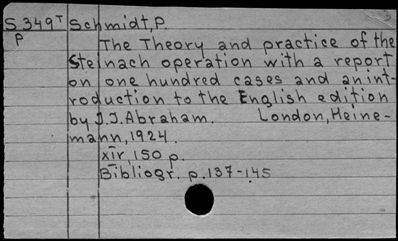 S 349T Schmidt, P
P
The Theory and practice of the
Steinach operation with a report
on one hundred cases and an int-
roduction to the English edition
by J.J. Abraham. London, Heine-
mann, 1924.
xiv, 150 p.
Bibliogr. p. 137-145